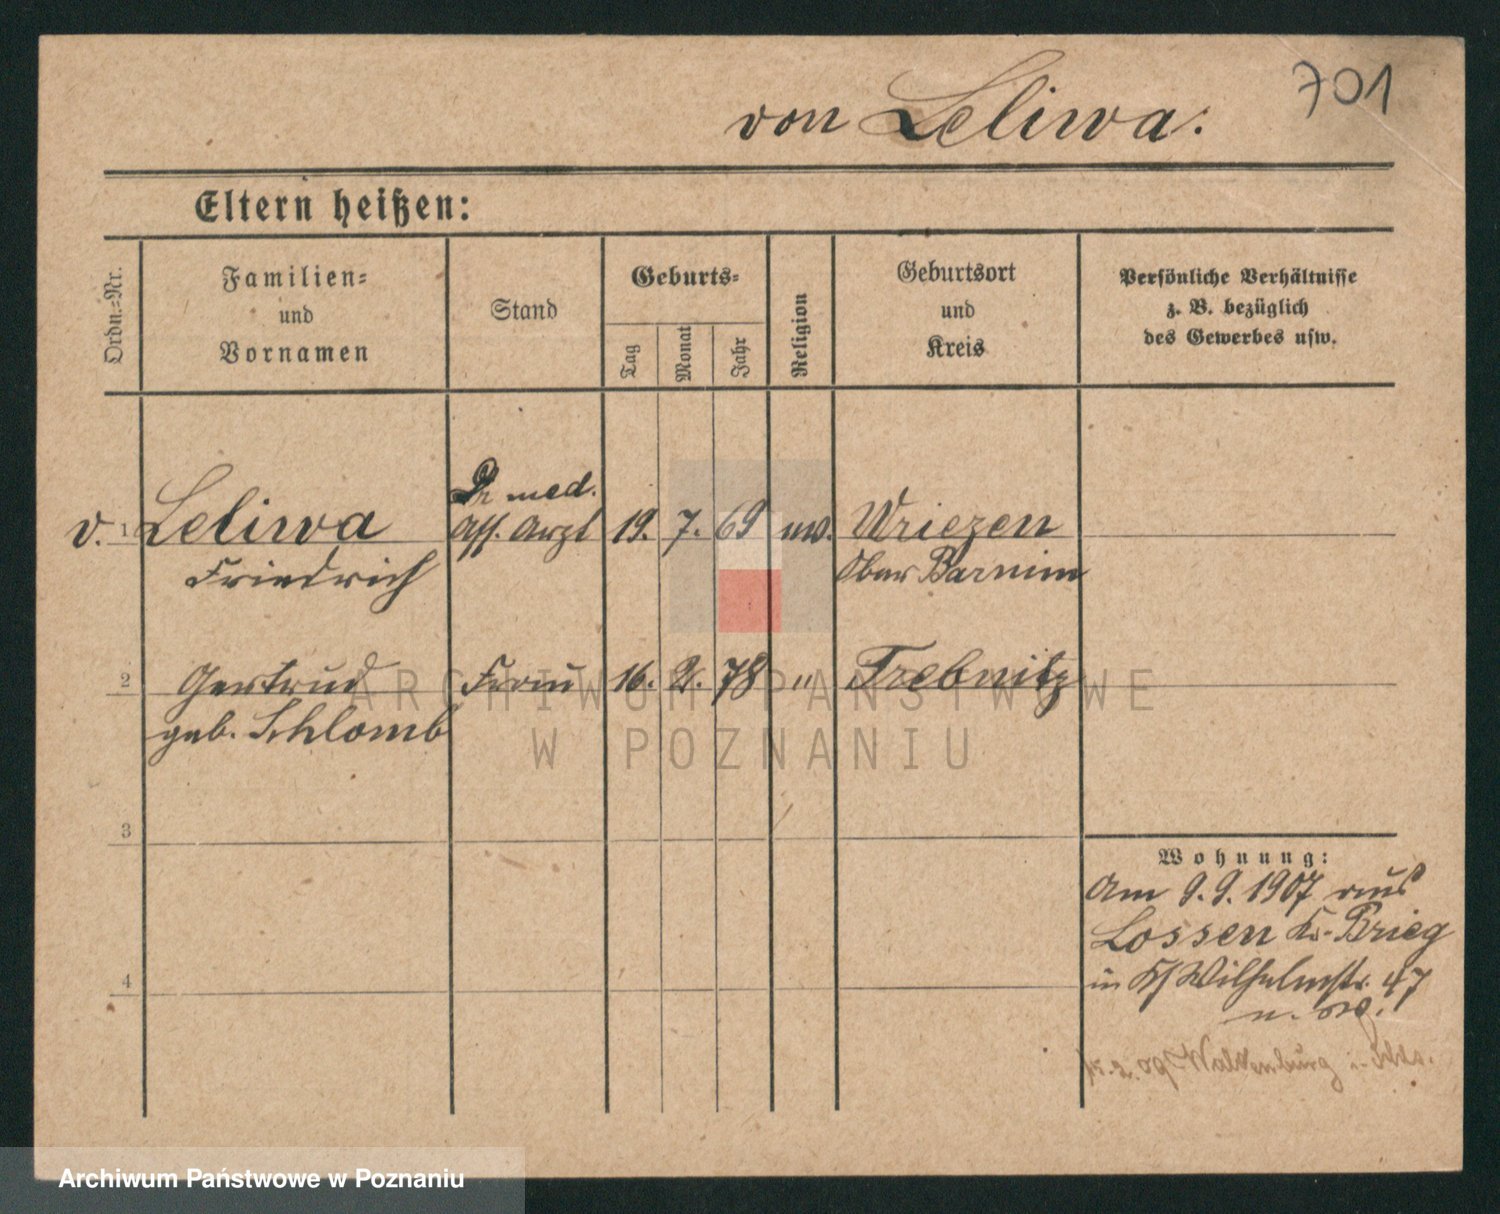 701
von Leliwa.
Eltern heißen:
Ordn.=Nr.
Familien=
und
Vornamen
Stand
Geburts=
Tag
Monat
Jahr
Religion
Geburtsort
und
Kreis
Persönliche Verhältnisse
z. B. bezüglich
des Gewerbes usw.
Dr med.
v. 1 Leliwa Ass. Arzt 19. 7. 69 Wriezen
Friedrich Ober Barnim
2 Gertrud Frau 16. 2. 78 " Trebnitz
geb. Schlomb
3
Wohnung:
Am 9.9.1907 aus
Lossen Kr. Brieg
4
in Wilhelmstr. 47
Waldenburg i. Schles.
ARCHIWUM PAŃSTWOWE
W POZNANIU
Archiwum Państwowe w Poznaniu